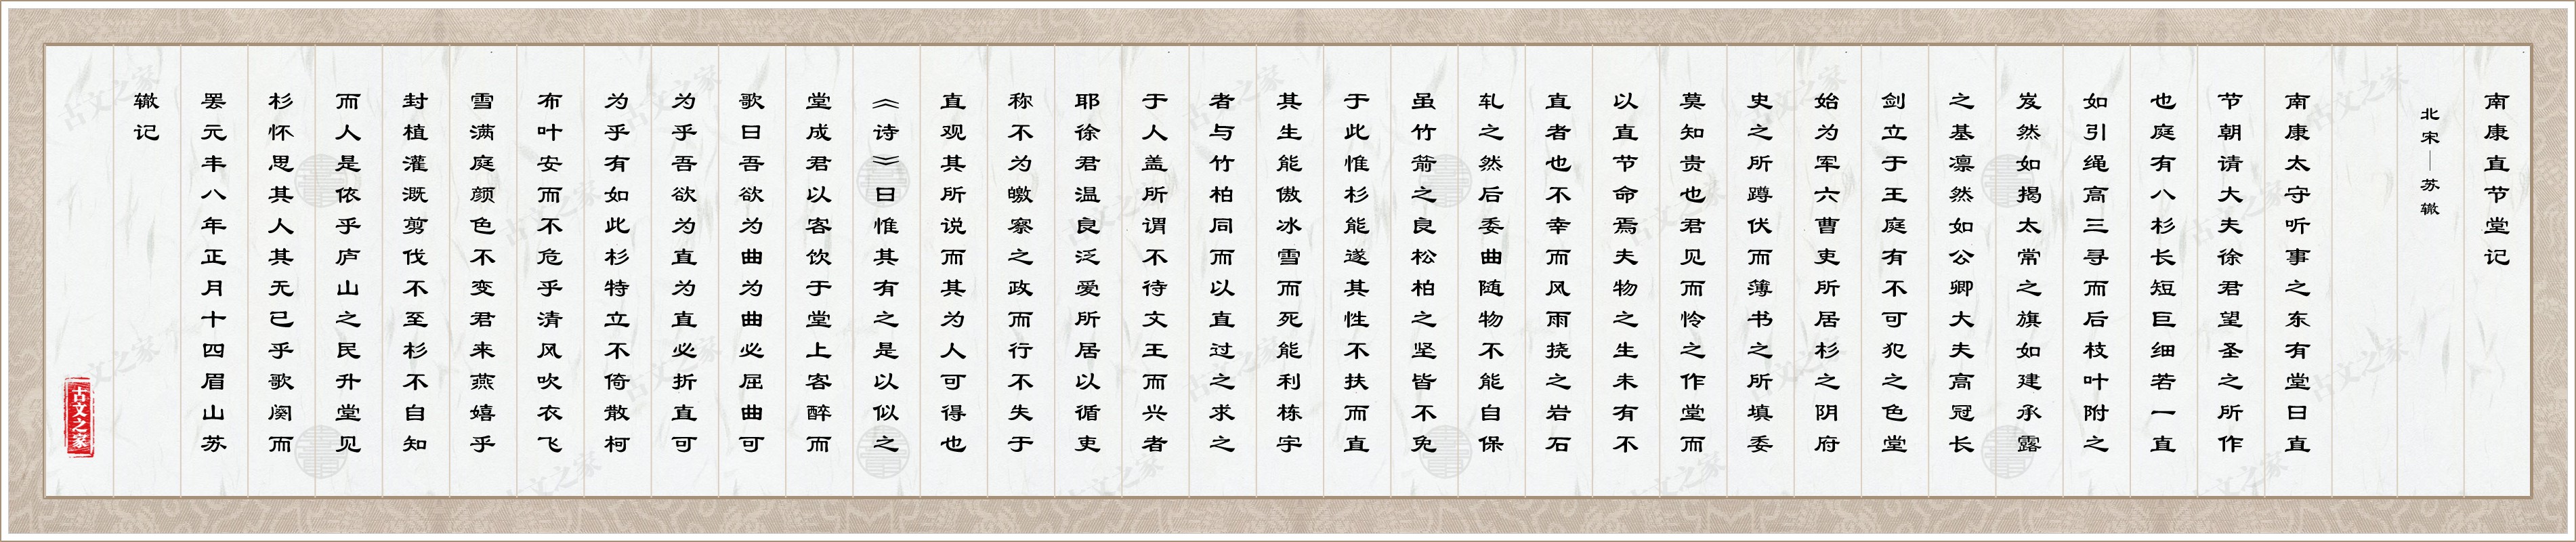 南康直节堂记
北宋—苏辙
南康太守听事之东有堂曰直
节朝请大夫徐君望圣之所作
也庭有八杉长短巨细若一直
如引绳高三寻而后枝叶附之
岌然如揭太常之旗如建承露
之基凛然如公卿大夫高冠长
剑立于王庭有不可犯之色堂
始为军六曹吏所居杉之阴府
史之所蹲伏而薄书之所填委
莫知贵也君见而怜之作堂而
以直节命焉夫物之生未有不
直者也不幸而风雨挠之岩石
轧之然后委曲随物不能自保
虽竹箭之良松柏之坚皆不免
于此惟杉能遂其性不扶而直
其生能傲冰雪而死能利栋宇
者与竹柏同而以直过之求之
于人盖所谓不待文王而兴者
耶徐君温良泛爱所居以循吏
称不为皦察之政而行不失于
直观其所说而其为人可得也
《诗》曰惟其有之是以似之
堂成君以客饮于堂上客醉而
歌曰吾欲为曲为曲必屈曲可
为乎吾欲为直为直必折直可
为乎有如此杉特立不倚散柯
布叶安而不危乎清风吹衣飞
雪满庭颜色不变君来燕嬉乎
封植灌溉剪伐不至杉不自知
而人是依乎庐山之民升堂见
杉怀思其人其无已乎歌阕而
罢元丰八年正月十四眉山苏
辙记
古文之家